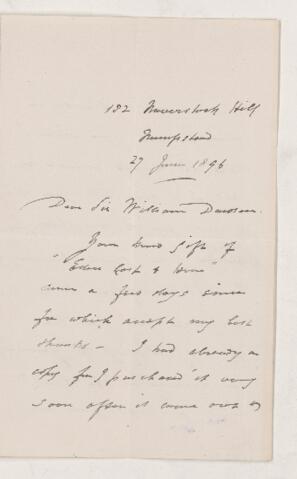 182 Haverstock Hill
Hampstead
27 June 1896
Dear Sir William Dawson.
Your kind gift of
"Eden Lost & Won"
came a few days since
for which accept my best
thanks — I had already a
copy for I purchased it very
soon after it came out &